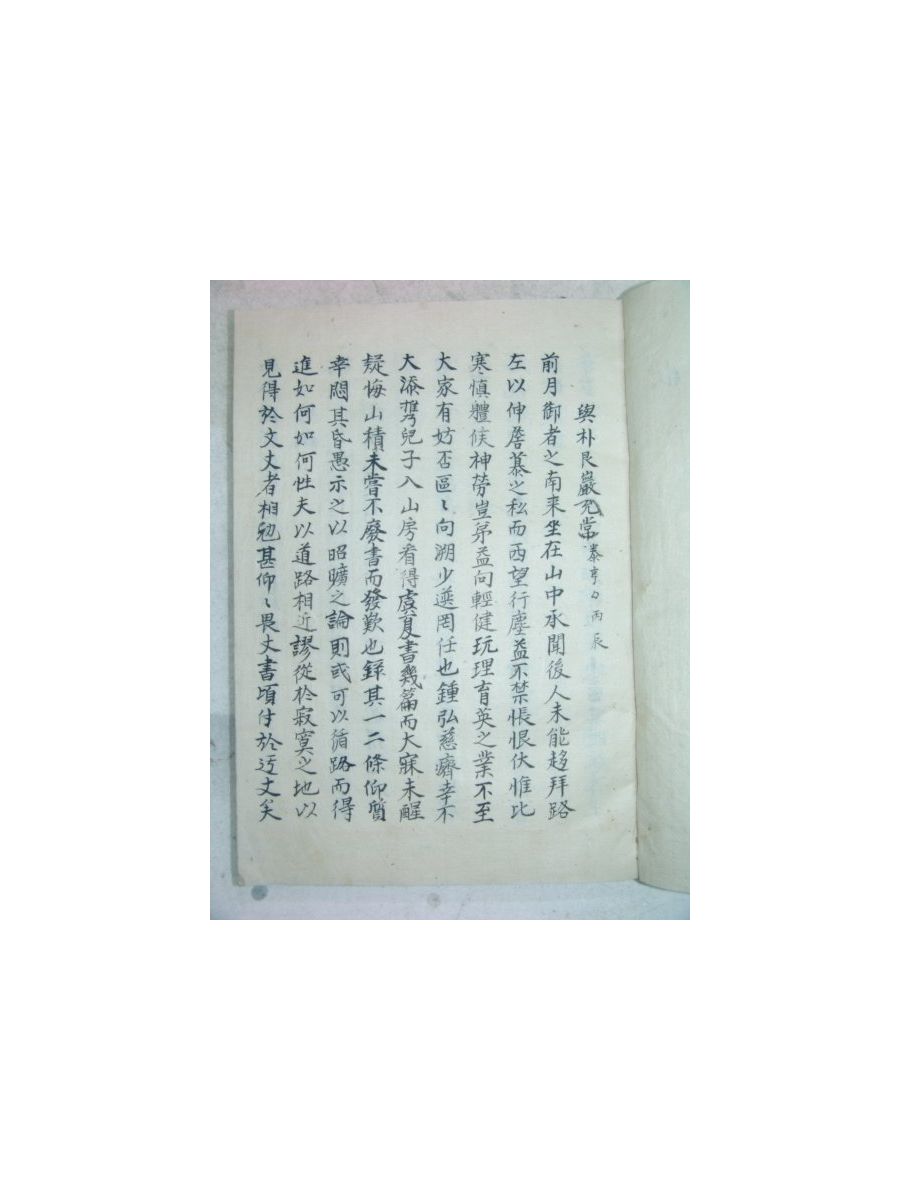 與朴艮巖充常 泰亨 丙辰
前月御者之南來坐在山中承聞後人未能趍拜路
左以伸詹慕之私而西望行塵益不禁悵恨伏惟比
寒愼體候神勞豈弟益向輕健玩理育英之業不至
大家有妨否區〻向溯少選罔任也鍾弘慈癠幸不
大添雋兒子入山房看得虞夏書幾篇而大寐未醒
疑悔山積未嘗不廢書而發歎也錄其一二條仰質
幸悶其昏愚示之以昭曠之論則或可以循路而得
進如何如何性夫以道路相近謬從於寂寞之地以
見得於文丈者相勉甚仰〻畏丈書頃付於迃丈矣